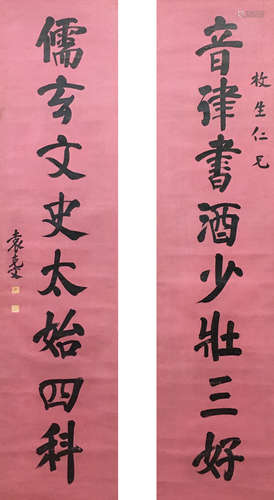 牧生仁兄
音律書酒少壯三好
儒玄文史太始四科
袁克文